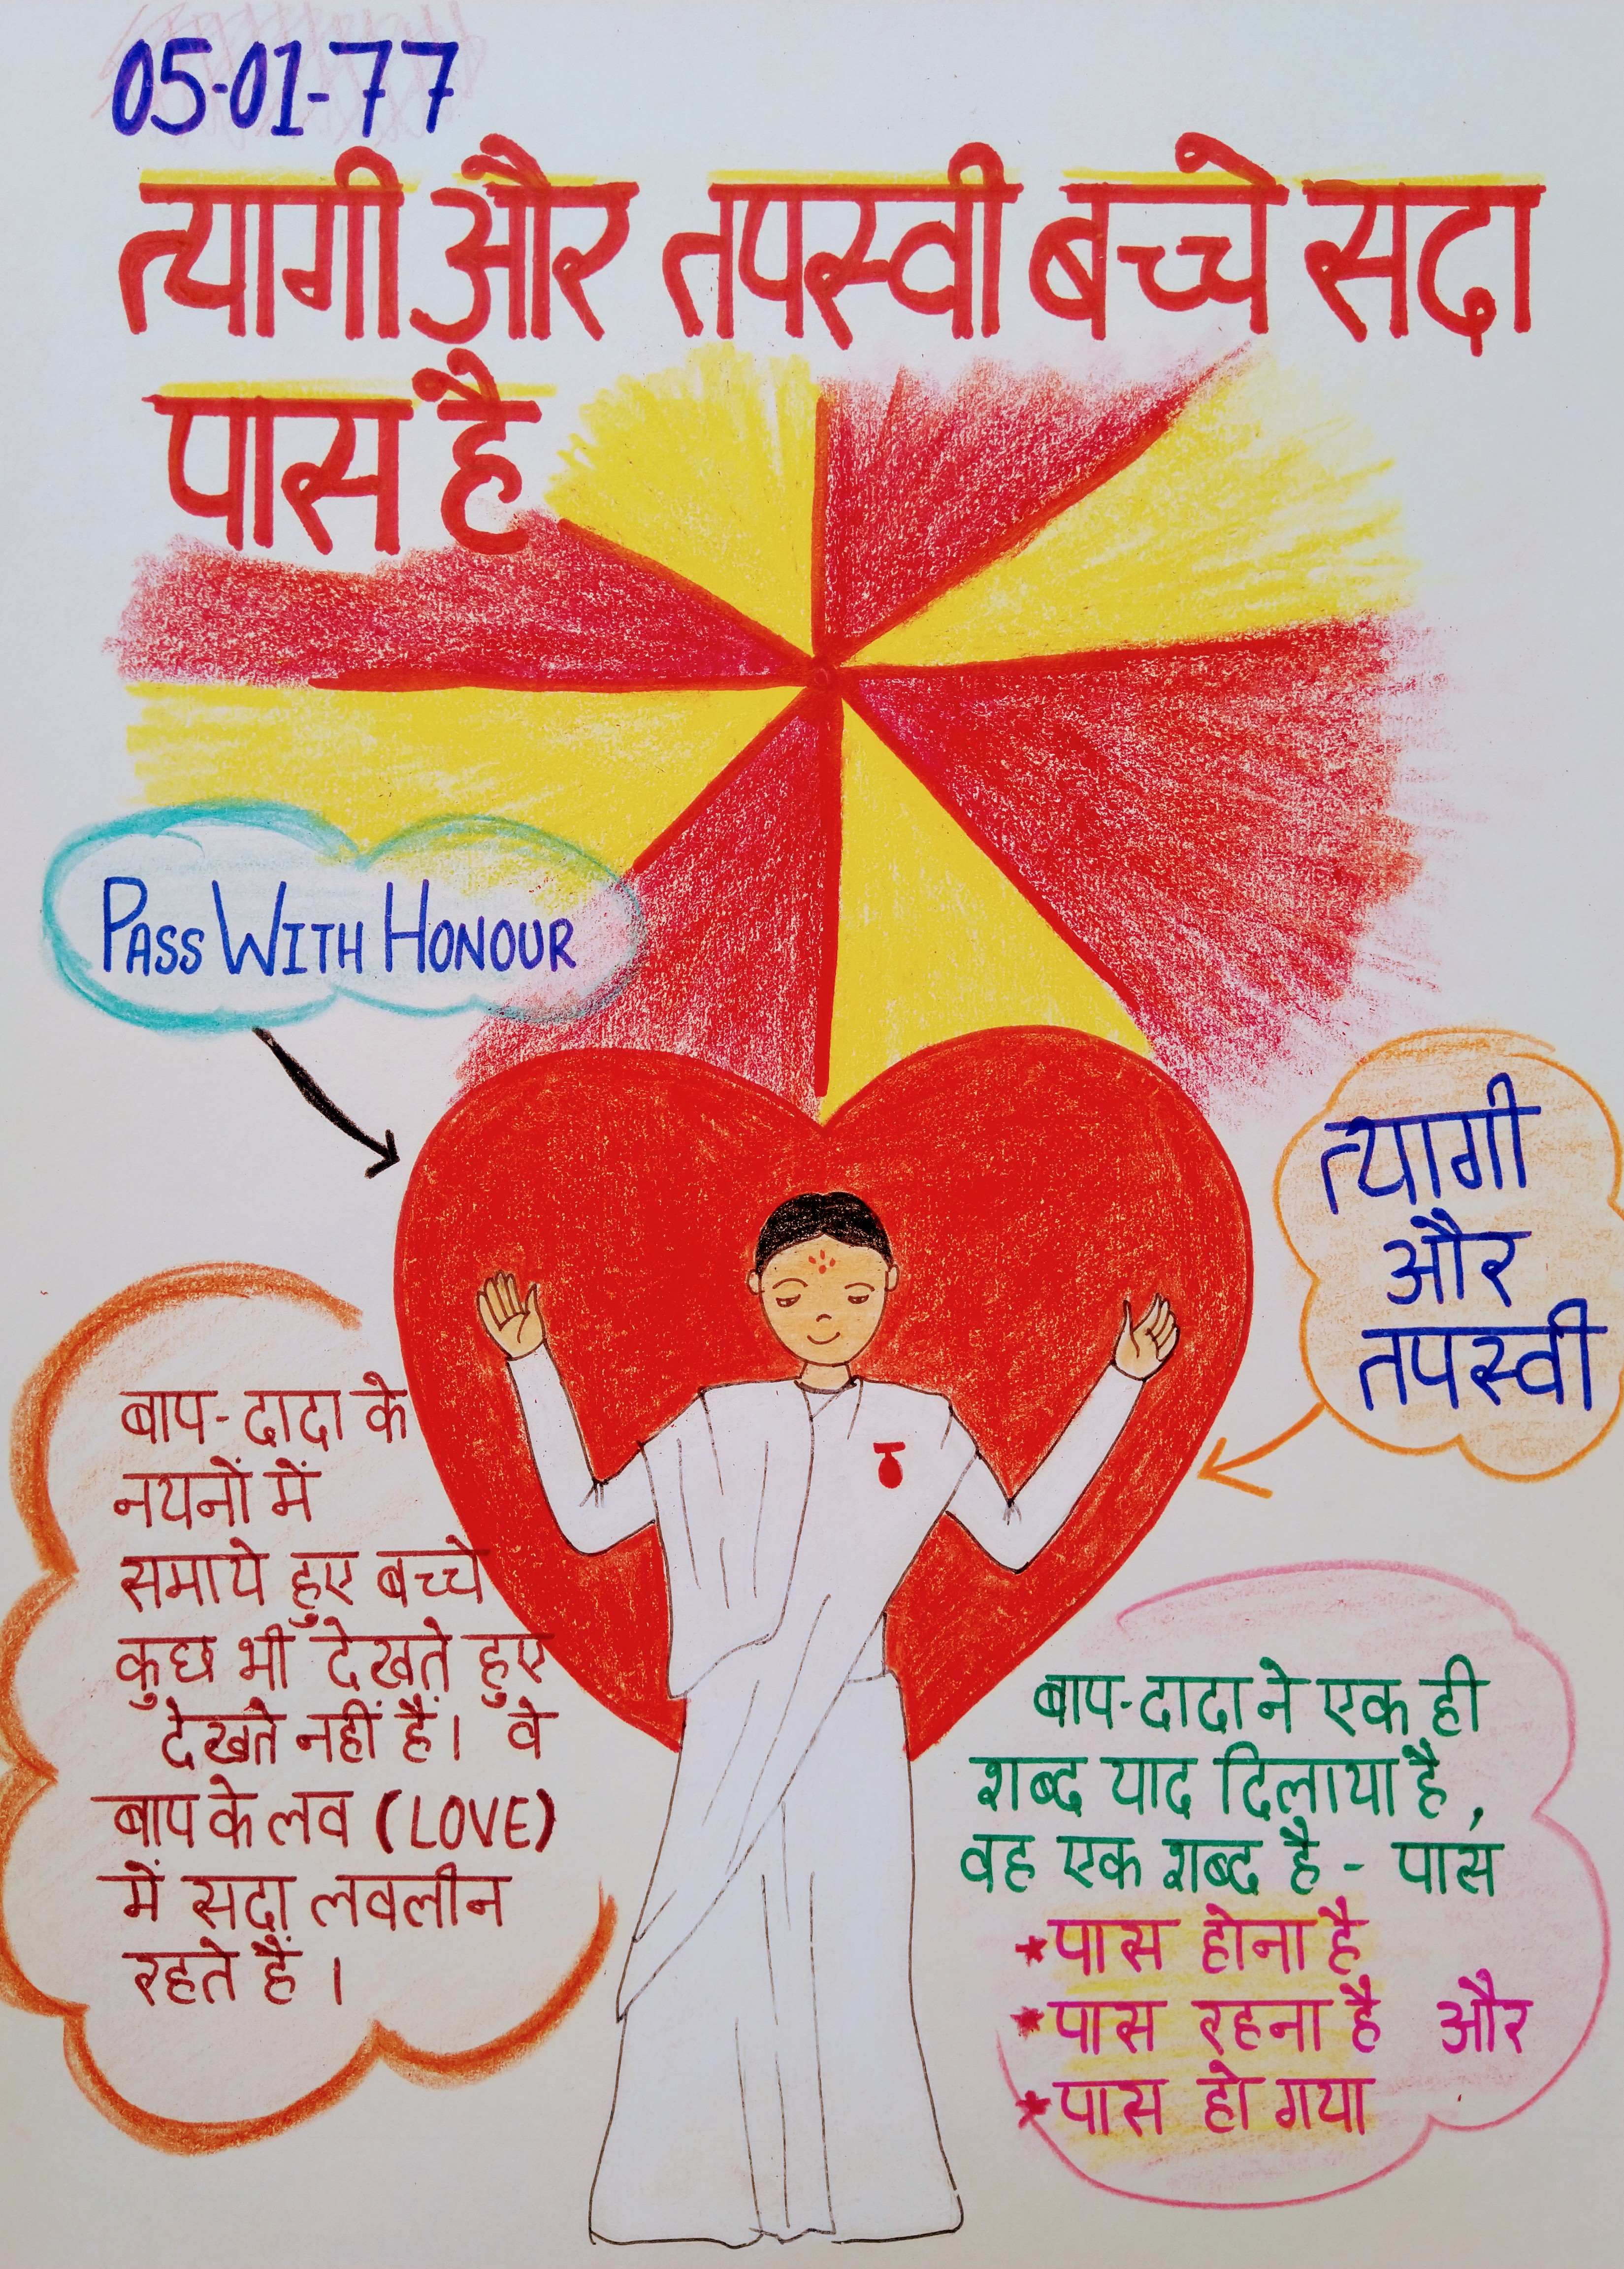 05-01-77
त्यागी और तपस्वी बच्चे सदा
पास है
PASS WITH HONOUR
त्यागी
और
तपस्वी
बाप-दादा के
नयनों में
समाये हुए बच्चे
कुछ भी देखते हुए
देखते नहीं हैं। वे
बाप के लव (LOVE)
में सदा लवलीन
रहते हैं।
बाप-दादा ने एक ही
शब्द याद दिलाया है,
वह एक शब्द है - पास
*पास होना है
*पास रहना है और
*पास हो गया